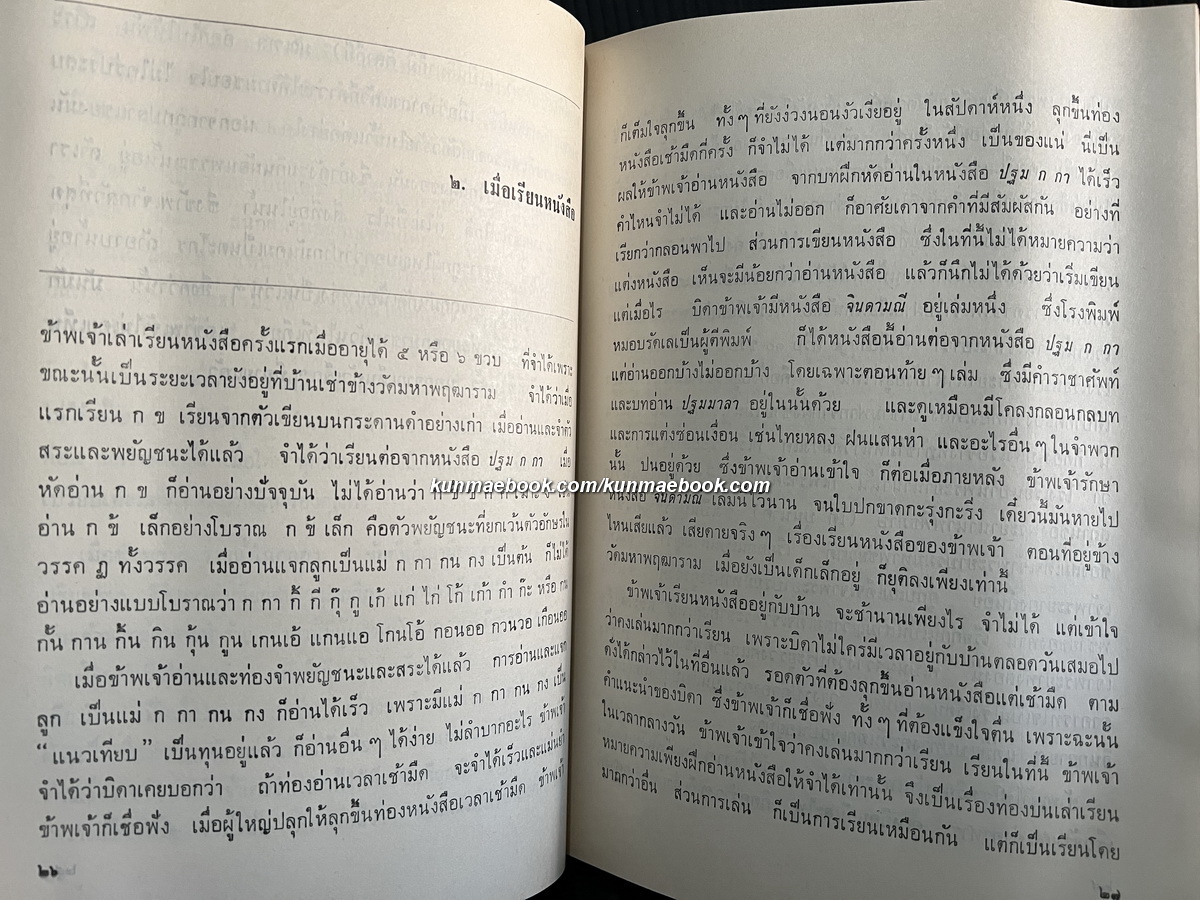 ๒. เมื่อเรียนหนังสือ
ข้าพเจ้าเล่าเรียนหนังสือครั้งแรกเมื่ออายุได้ ๕ หรือ ๖ ขวบ ที่จำได้เพราะ
ขณะนั้นเป็นระยะเวลายังอยู่ที่บ้านเช่าข้างวัดมหาพฤฒาราม จำได้ว่าเมื่อ
แรกเรียน ก ข เรียนจากตัวเขียนบนกระดานดำอย่างเก่า เมื่ออ่านและจำตัว
สระและพยัญชนะได้แล้ว จำได้ว่าเรียนต่อจากหนังสือ ปฐม ก กา เมื่อ
หัดอ่าน ก ข ก็อ่านอย่างปัจจุบัน ไม่ได้อ่านว่า
อ่าน ก ข้ เล็กอย่างโบราณ ก ข้ เล็ก คือตัวพยัญชนะที่ยกเว้นตัวอักษรใน
วรรค ฎ ทั้งวรรค เมื่ออ่านแจกลูกเป็นแม่ ก กา กน กง เป็นต้น ก็ไม่ได้
อ่านอย่างแบบโบราณว่า ก กา กิ้ กี กุ๊ กู เก้ แก่ ไก่ โก้ เก้า กำ ก๊ะ หรือ กน
กั้น กาน กิ้น กิน กุ้น กูน เกนเอ้ แกนแอ โกนโอ้ กอนออ กวนวอ เกือนออ
เมื่อข้าพเจ้าอ่านและท่องจำพยัญชนะและสระได้แล้ว การอ่านและแจก
ลูก เป็นแม่ ก กา กน กง ก็อ่านได้เร็ว เพราะมีแม่ ก กา กน กง เป็น
“แนวเทียบ” เป็นทุนอยู่แล้ว ก็อ่านอื่น ๆ ได้ง่าย ไม่ลำบากอะไร ข้าพเจ้า
จำได้ว่าบิดาเคยบอกว่า ถ้าท่องอ่านเวลาเช้ามืด จะจำได้เร็วและแม่นยำ
ข้าพเจ้าก็เชื่อฟัง เมื่อผู้ใหญ่ปลุกให้ลุกขึ้นท่องหนังสือเวลาเช้ามืด ข้าพเจ้า
๒๖
ก็เต็มใจลุกขึ้น ทั้ง ๆ ที่ยังง่วงนอนงัวเงียอยู่ ในสัปดาห์หนึ่ง ลุกขึ้นท่อง
หนังสือเช้ามืดกี่ครั้ง ก็จำไม่ได้ แต่มากกว่าครั้งหนึ่ง เป็นของแน่ นี่เป็น
ผลให้ข้าพเจ้าอ่านหนังสือ จากบทฝึกหัดอ่านในหนังสือ ปฐม ก กา ได้เร็ว
คำไหนจำไม่ได้ และอ่านไม่ออก ก็อาศัยเดาจากคำที่มีสัมผัสกัน อย่างที่
เรียกว่ากลอนพาไป ส่วนการเขียนหนังสือ ซึ่งในที่นี้ไม่ได้หมายความว่า
แต่งหนังสือ เห็นจะมีน้อยกว่าอ่านหนังสือ แล้วก็นึกไม่ได้ด้วยว่าเริ่มเขียน
แต่เมื่อไร บิดาข้าพเจ้ามีหนังสือ จินดามณี อยู่เล่มหนึ่ง ซึ่งโรงพิมพ์
หมอบรัดเลเป็นผู้ตีพิมพ์ ก็ได้หนังสือนี้อ่านต่อจากหนังสือ ปฐม ก กา
แต่อ่านออกบ้างไม่ออกบ้าง โดยเฉพาะตอนท้าย ๆ เล่ม ซึ่งมีคำราชาศัพท์
และบทอ่าน ปฐมมาลา อยู่ในนั้นด้วย และดูเหมือนมีโคลงกลอนกลบท
และการแต่งซ่อนเงื่อน เช่นไทยหลง ฝนแสนห่า และอะไรอื่น ๆ ในจำพวก
นั้น ปนอยู่ด้วย ซึ่งข้าพเจ้าอ่านเข้าใจ ก็ต่อเมื่อภายหลัง ข้าพเจ้ารักษา
หนังสือ จินดามณี เล่มนี้ไว้นาน จนใบปกขาดกะรุ่งกะริ่ง เดี๋ยวนี้มันหายไป
ไหนเสียแล้ว เสียดายจริง ๆ เรื่องเรียนหนังสือของข้าพเจ้า ตอนที่อยู่ข้าง
วัดมหาพฤฒาราม เมื่อยังเป็นเด็กเล็กอยู่ ก็ยุติลงเพียงเท่านี้
ข้าพเจ้าเรียนหนังสืออยู่กับบ้าน จะช้านานเพียงไร จำไม่ได้ แต่เข้าใจ
ว่าคงเล่นมากกว่าเรียน เพราะบิดาไม่ใคร่มีเวลาอยู่กับบ้านตลอดวันเสมอไป
ดั่งได้กล่าวไว้ในที่อื่นแล้ว รอดตัวที่ต้องลุกขึ้นอ่านหนังสือแต่เช้ามืด ตาม
คำแนะนำของบิดา ซึ่งข้าพเจ้าก็เชื่อฟัง ทั้ง ๆ ที่ต้องแข็งใจตื่น เพราะฉะนั้น
ในเวลากลางวัน ข้าพเจ้าเข้าใจว่าคงเล่นมากกว่าเรียน เรียนในที่นี้ ข้าพเจ้า
หมายความเพียงฝึกอ่านหนังสือให้จำได้เท่านั้น จึงเป็นเรื่องท่องบ่นเล่าเรียน
มากกว่าอื่น ส่วนการเล่น ก็เป็นการเรียนเหมือนกัน แต่ก็เป็นเรียนโดย
๒๗
kunmaebook.com/kunmaebook.com